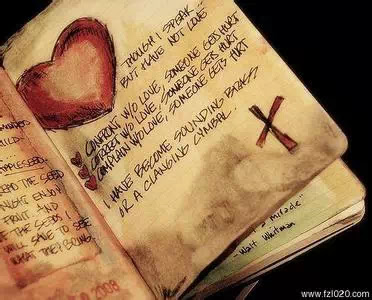 THOUGH I SPEAK
BUT HAVE NOT LOVE
CONFRONT W/O LOVE, SOMEONE GETS HURT
CORRECT W/O LOVE, SOMEONE GETS HURT
COMPLAIN W/O LOVE, SOMEONE GETS HURT
I HAVE BECOME SOUNDING BRASS
OR A CLANGING CYMBAL.
THE SEED
ENJOY
FRUIT AND
THE SEEDS I
WILL HAVE TO SEE
WHAT THEY BRING.
2008
a Miracle"
- Walt Whitman
www.fzl020.com